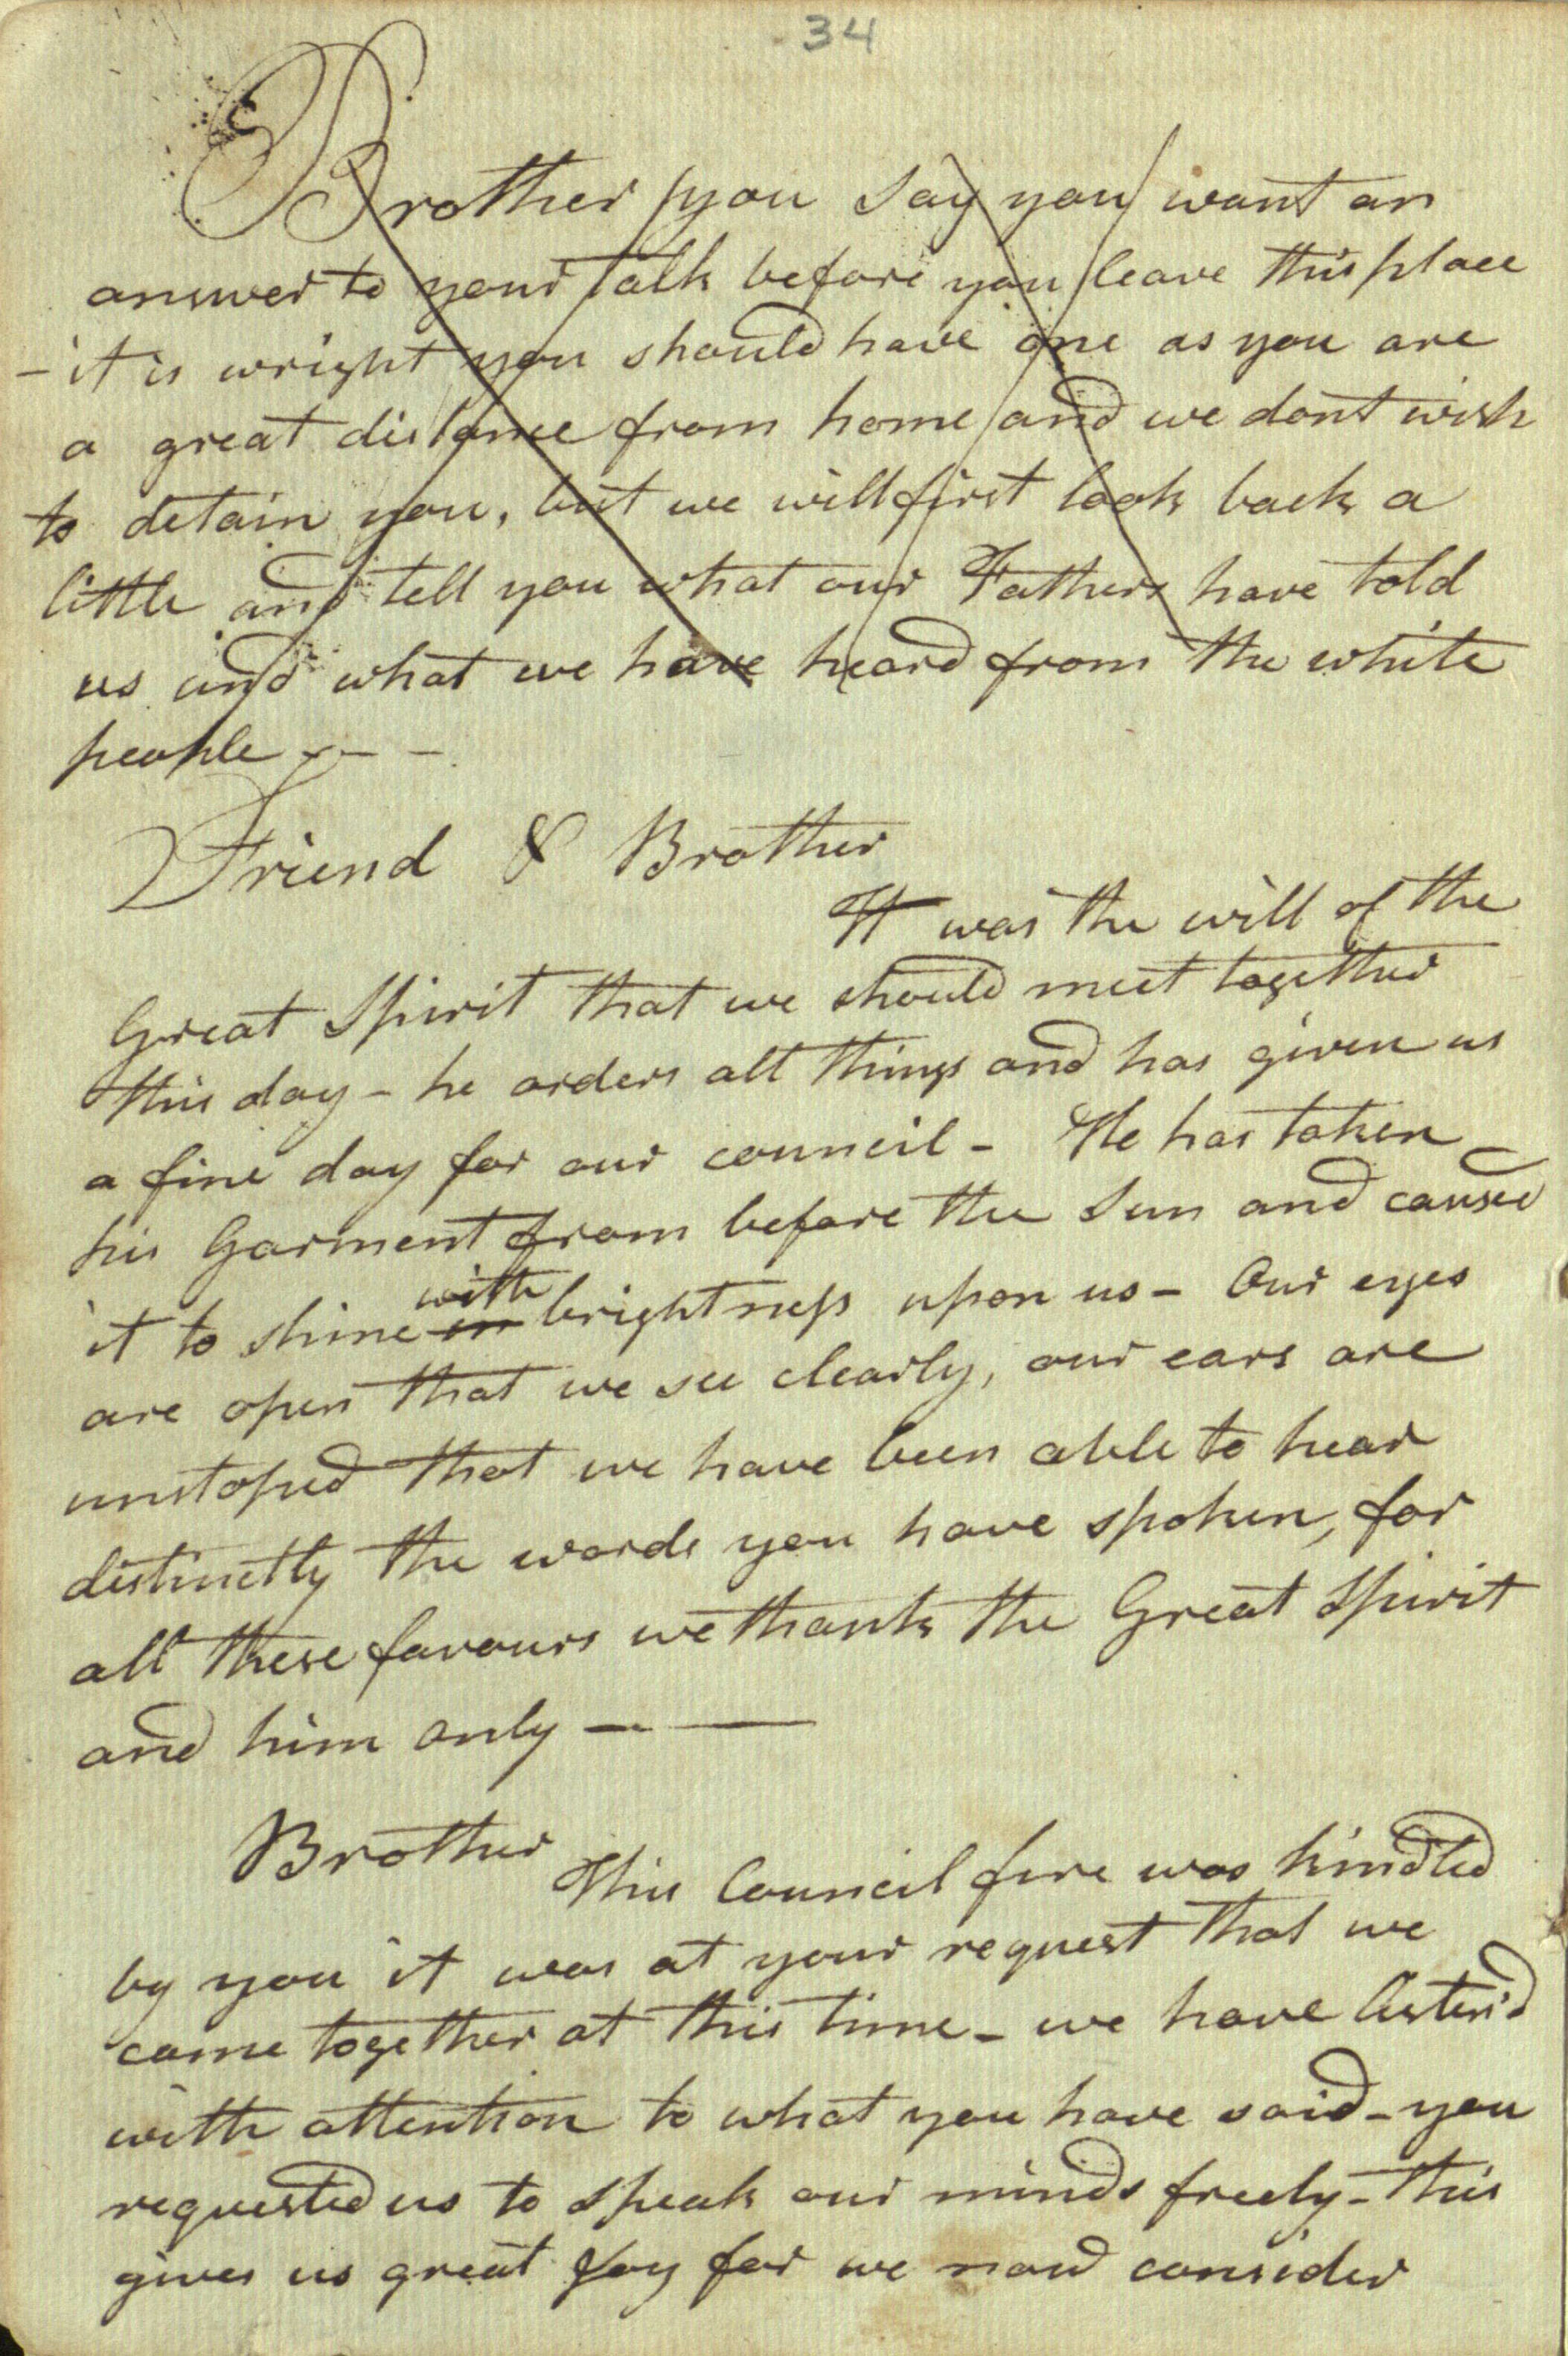 34
Brother you say you want an
answer to your talk before you leave this place
- it is wright you should have one as you are
a great distance from home and we dont wish
to detain you, but we will first look back a
little and tell you what our Fathers have told
us and what we have heard from the white
people - - -
Friend & Brother
It was the will of the
Great Spirit that we should meet together
this day - he orders all things and has given us
a fine day for our council - He has taken
his Garment from before the Sun and caused
with
it to shine in brightness upon us - Our eyes
are open that we see clearly, our ears are
unstoped that we have been able to hear
distinctly the words you have spoken, for
all these favours we thank the Great Spirit
and him only - —
Brother
This Council fire was kindled
by you it was at your request that we
came together at this time - we have listen'd
with attention to what you have said - you
requested us to speak our minds freely - this
gives us great Joy for we now consider